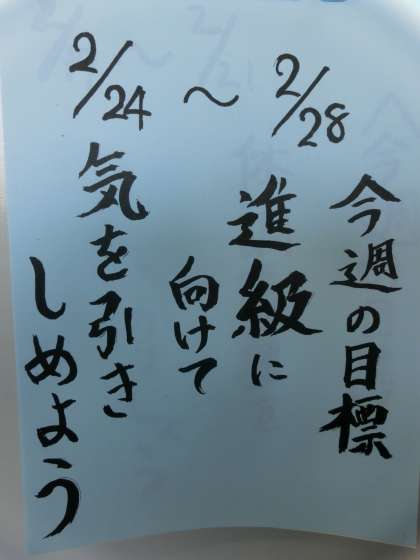 2/24 〜 2/28
今週の目標
進級に
向けて
気を引き
しめよう